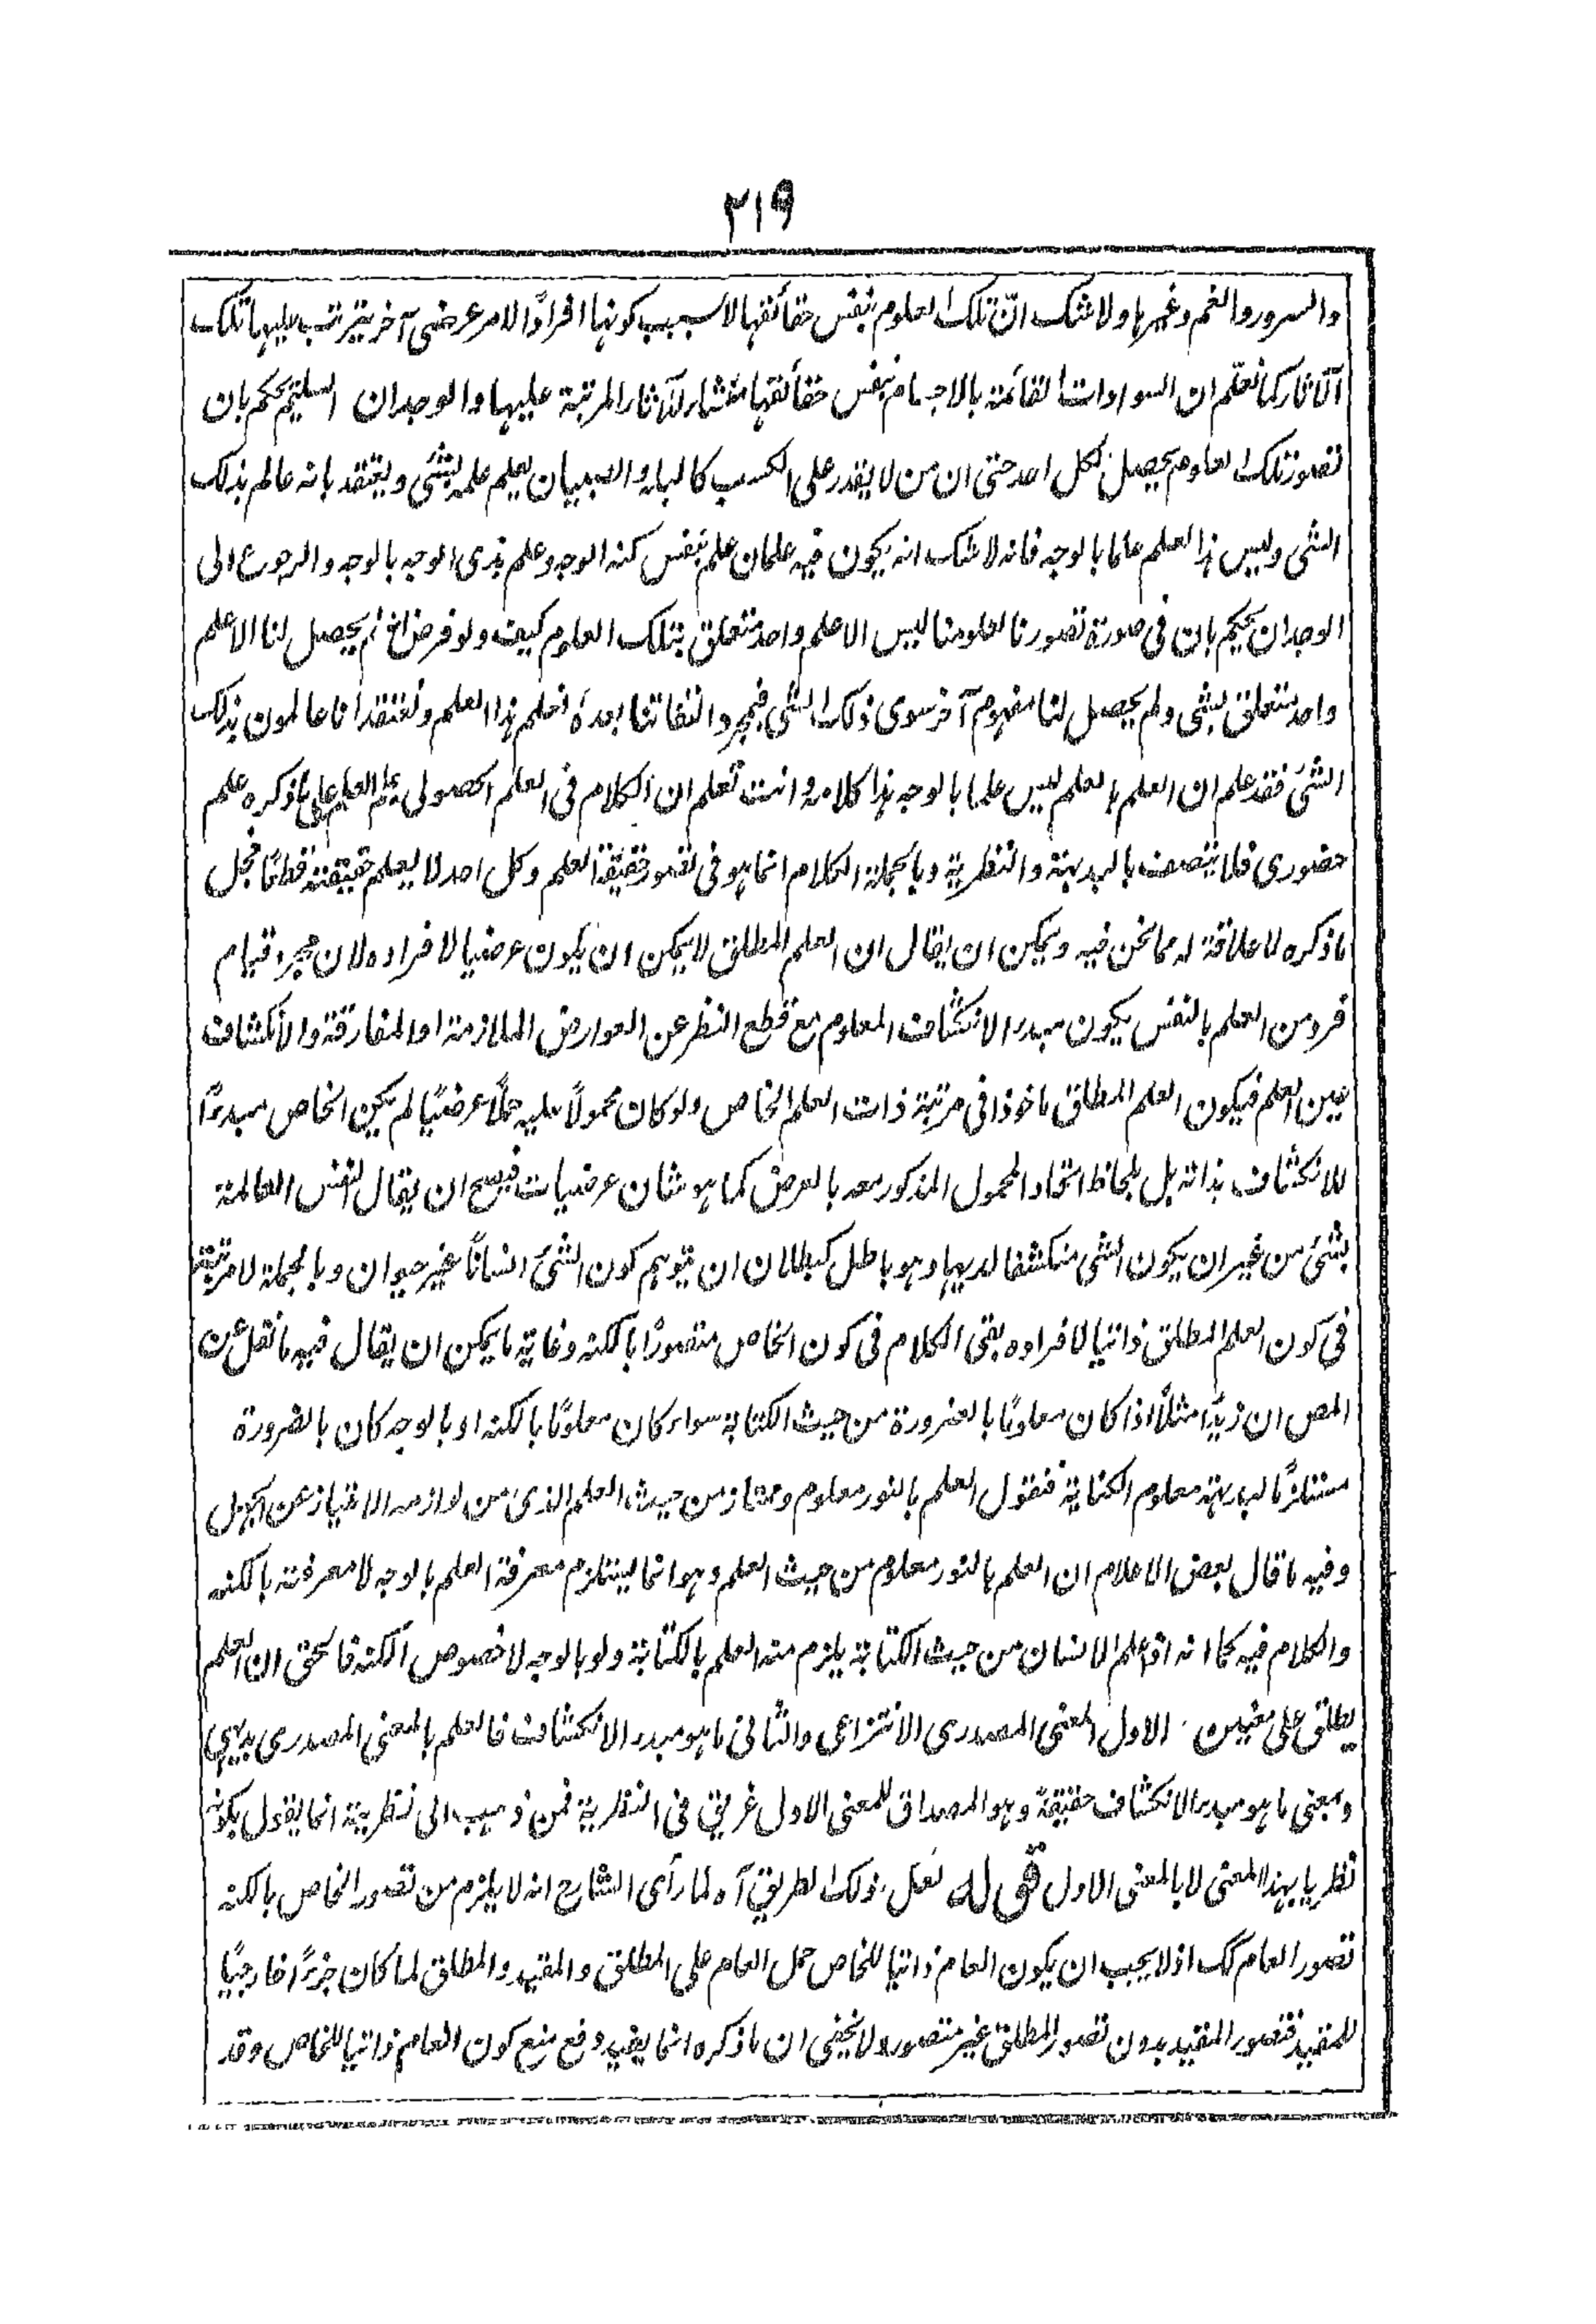 ٢١٩
والسرور والغم وغيرها ولا شك انّ تلك العلوم بنفس حقائقها لا بسبب كونها افرادًا لامر عرضي آخر يترتب عليها تلك
الآثار كما نعلم ان السوادات القائمة بالاجسام بنفس حقائقها منشار للآثار المرتبة عليها والوجدان السليم يحكم بان
تصور تلك العلوم يحصل لكل احد حتى ان من لا يقدر على الكسب كالبله والصبيان يعلم علمه بشئ ويعتقد بانه عالم بذلك
الشئ وليس هذا العلم علما بالوجه فانه لا شك انه يكون فيه علمان علم بنفس كنه الوجه وعلم بذى الوجه بالوجه والرجوع الى
الوجدان يحكم بان فى صورة تصورنا لعلومنا ليس الا علم واحد متعلق بتلك العلوم كيف ولو فرض انه لم يحصل لنا الا علم
واحد متعلق بشئ ولم يحصل لنا مفهوم آخر سوى ذلك الشئ فبمجرد التفاتنا بعده نعلم هذا العلم ونعتقد انا عالمون بذلك
الشئ فقد علم ان العلم بالعلم ليس علما بالوجه هذا كلامه وانت تعلم ان الكلام فى العلم الحصولى وعلم العلم على ما ذكره علم
حضورى فلا يتصف بالبديهة والنظرية وبالجملة الكلام انما هو فى تصور حقيقة العلم وكل احد لا يعلم حقيقته قطعًا فجل
ما ذكره لا علاقة له مما نحن فيه ويمكن ان يقال ان العلم المطلق لا يمكن ان يكون عرضيا لافراده لان مجرد قيام
فرد من العلم بالنفس يكون مبدء الانكشاف المعلوم مع قطع النظر عن العوارض الملازمة او المفارقة والانكشاف
عين العلم فيكون العلم المطلق ماخوذا فى مرتبة ذات العلم الخاص ولو كان محمولاً عليه حملاً عرضيًا لم يكن الخاص مبدءًا
للانكشاف بذاته بل بلحاظ اتحاد المحمول المذكور معه بالعرض كما هو شان عرضيات فيصح ان يقال النفس العالمة
بشئ من غير ان يكون الشئ منكشفا لديها وهو باطل كبطلان ان يتوهم كون الشئ انسانًا غير حيوان وبالجملة لا مرية
فى كون العلم المطلق ذاتيا لافراده بقى الكلام فى كون الخاص متصورًا بالكنه وغاية ما يمكن ان يقال فيه ما نقل عن
المص ان زيدًا مثلاً اذا كان معلومًا بالضرورة من حيث الكتابة سواء كان معلومًا بالكنه او بالوجه كان بالضرورة
مستلزمًا لبديهة معلوم الكتابة فنقول العلم بالنور معلوم وممتاز من حيث العلم الذى من لوازمه الامتياز عن الجهل
وفيه ما قال بعض الاعلام ان العلم بالنور معلوم من حيث العلم وهو انما يستلزم معرفة العلم بالوجه لا معرفته بالكنه
والكلام فيه كما انه اذا علم الانسان من حيث الكتابة يلزم منه العلم بالكتابة ولو بالوجه لا خصوص الكنه فالحق ان العلم
يطلق على معنيين الاول المعنى المصدرى الانتزاعى والثانى ما هو مبدء الانكشاف فالعلم بالمعنى المصدرى بديهى
وبمعنى ما هو مبدء الانكشاف حقيقة وهو المصداق للمعنى الاول غريق فى النظرية فمن ذهب الى نظرية انما يقول بكونه
نظريا بهذا المعنى لا بالمعنى الاول قوله نعل ذلك الطريق آه لما رأى الشارح انه لا يلزم من تصور الخاص بالكنه
تصور العام كك اذ لا يجب ان يكون العام ذاتيا للخاص حمل العام على المطلق والمقيد والمطلق لما كان جزءًا خارجيًا
للمقيد فتصور المقيد بدون تصور المطلق غير متصور ولا يخفى ان ما ذكره انما يفيد دفع منع كون العام ذاتيا للخاص وقد